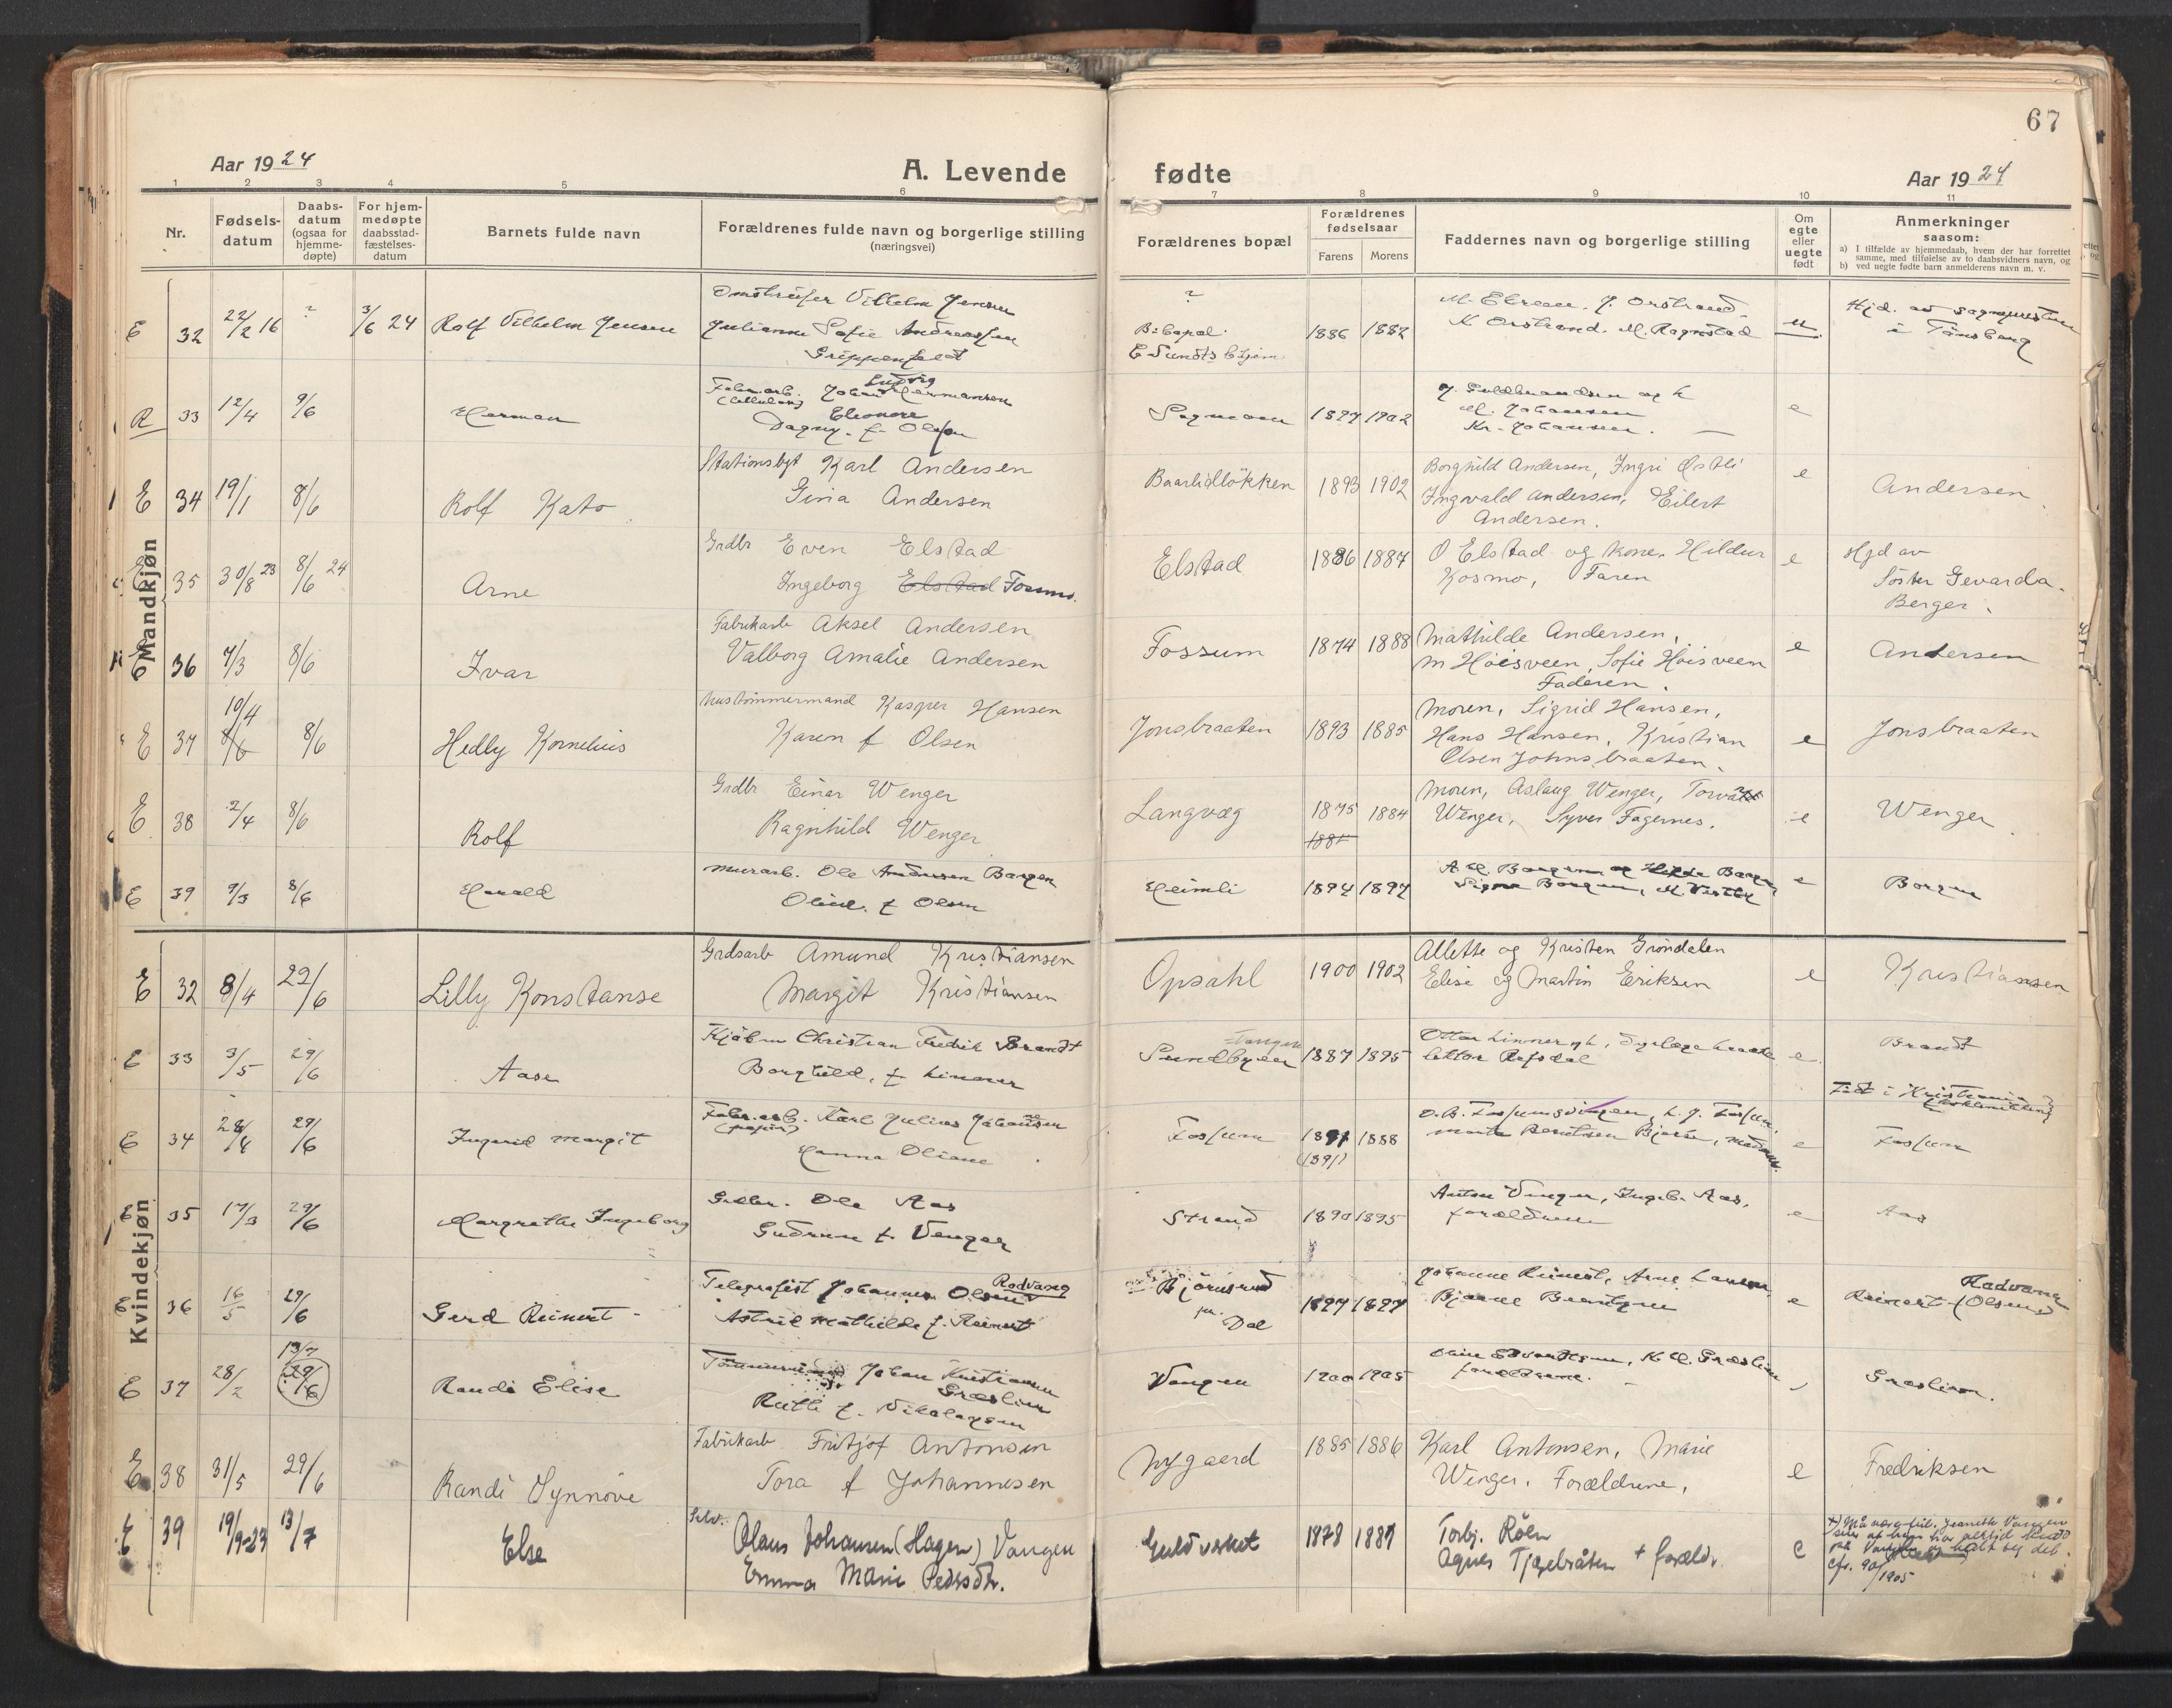 67
Aar 1924
A. Levende
fødte
Aar 1924
1 2 3 4 5 6 7 8 9 10 11
Nr.
Fødsels-
datum
Daabs-
datum
(ogsaa for
hjemme-
døpte)
For hjem-
medøpte
daabsstad-
fæstelses-
datum
Barnets fulde navn
Forældrenes fulde navn og borgerlige stilling
(næringsvei)
Forældrenes bopæl
Forældrenes
fødselsaar
Farens Morens
Faddernes navn og borgerlige stilling
Om
egte
eller
uegte
født
Anmerkninger
saasom:
a) I tilfælde av hjemmedaab, hvem der har forrettet
samme, med tilføielse av to daabsvidners navn, og
b) ved uegte fødte barn anmelderens navn m. v.
Mandkjøn
E 32 22/2 16 ? 3/6 24 Rolf Vilhelm Jensen
Vilhelm Jensen
Julianne Sofie Andreassen
Grippenfeldt
?
B: bopæl
E Sundts hjem
1886 1882
J. Orstrand
K Orstrand. M. Ragnstad
u
Hjd. av sognepresten
i Tønsberg
R 33 12/4 9/6 Herman
Fabr.arb. Johan Ludvig Hermansen
(cellulose)
Dagny Eleonore f. Olsen
Sogmoen 1897 1902
J. Guldbrandsen og h
M. Johansen
Kr. Johansen
e
E 34 19/1 8/6 Rolf Kato
Stationsbgt Karl Andersen
Gina Andersen
Baarlidløkken 1893 1902
Borghild Andersen, Ingri Østli
Ingvald Andersen, Eilert
Andersen.
e
Andersen
E 35 30/8 23 8/6 24 Arne
Grdbr Even Elstad
Ingeborg Elstad Fossmo.
Elstad 1886 1887
O Elstad og kone. Hildur
Kosmo, Faren
e
Hjd av
Søster Gevarda
Berger.
E 36 7/3 8/6 Ivar
Fabrikarb Aksel Andersen
Valborg Amalie Andersen
Fossum 1874 1888
Mathilde Andersen,
M Høisveen, Sofie Høisveen
Faderen.
e
Andersen
E 37 10/4 8/6 8/6 Hedly Kornelius
Hustømmermand Kasper Hansen
Karen f Olsen
Jonsbraaten 1893 1885
Moren, Sigrid Hansen,
Hans Hansen, Kristian
Olsen Johnsbraaten.
e
Jonsbraaten
E 38 2/4 8/6 Rolf
Grdbr Einar Wenger
Ragnhild Wenger
Langvæg 1875 1884
1881
Moren, Aslaug Wenger, Torvald
Wenger, Syver Fagernes.
e
Wenger
E 39 9/3 8/6 Harald
Murarb. Ole Andersen Bangen
Oline f Olsen
Heimli 1894 1897
e
Kvindekjøn
E 32 8/4 29/6 Lilly Konstanse
Grdsarb Amund Kristiansen
Margit Kristiansen
Opsahl 1900 1902
Allette og Kristen Grøndalen
Elise og Martin Eriksen
e
Kristiansen
E 33 3/5 29/6 Aase
Kjøbm Christian Fredrik Brandt
Borghild, f Linner
Tangen
Sundbyen 1887 1895
lektor Refsdal
e
Brandt
E 34 28/4 29/6 Ingerid Margit
Fabr.arb. Karl Julius Johansen
(papir)
Hanna Oliane
Fossum 1891 1888
(1891)
e
Født i Kristiania
Fossum
E 35 17/3 29/6 Margrethe Ingeborg
Grdbr. Ole Aas
Gudrun f. Venger
Strand 1890 1895
Anton Venger, Ingeb. Aas,
forældrene
e
Aas
E 36 16/5 29/6 Gerd Reinert
Telegrafist Johannes Olsen Rodvang
Astrid Mathilde f. Reinert
Bjørnsrud
pr. Dal
1897 1897
Johanne Reinert, Arne Larsen,
Bjarne Berntzen
e
Radvang
Reinert (Olsen)
E 37 28/2 13/7 29/6 Randi Elise
Johan Kristiansen
Græslien
Ruth f. Nikolaysen
Vangen 1900 1905
forældrene.
Græslien.
E 38 31/5 29/6 Randi Synnøve
Fabrikarb Fritjof Antonsen
Tora f Johannesen
Nygaard 1885 1886
Karl Antonsen, Marie
Wenger, Forældrene,
e
Fredriksen
E 39 19/9-23 13/7 Else
Selv. Olaus Johansen (Hagen) Vangen
Emma Marie Pedersdtr.
Guldverket 1878 1881
Torbj. Røen
Agnes Tjæelråten + foreldr.
e
cfr. 90/1905